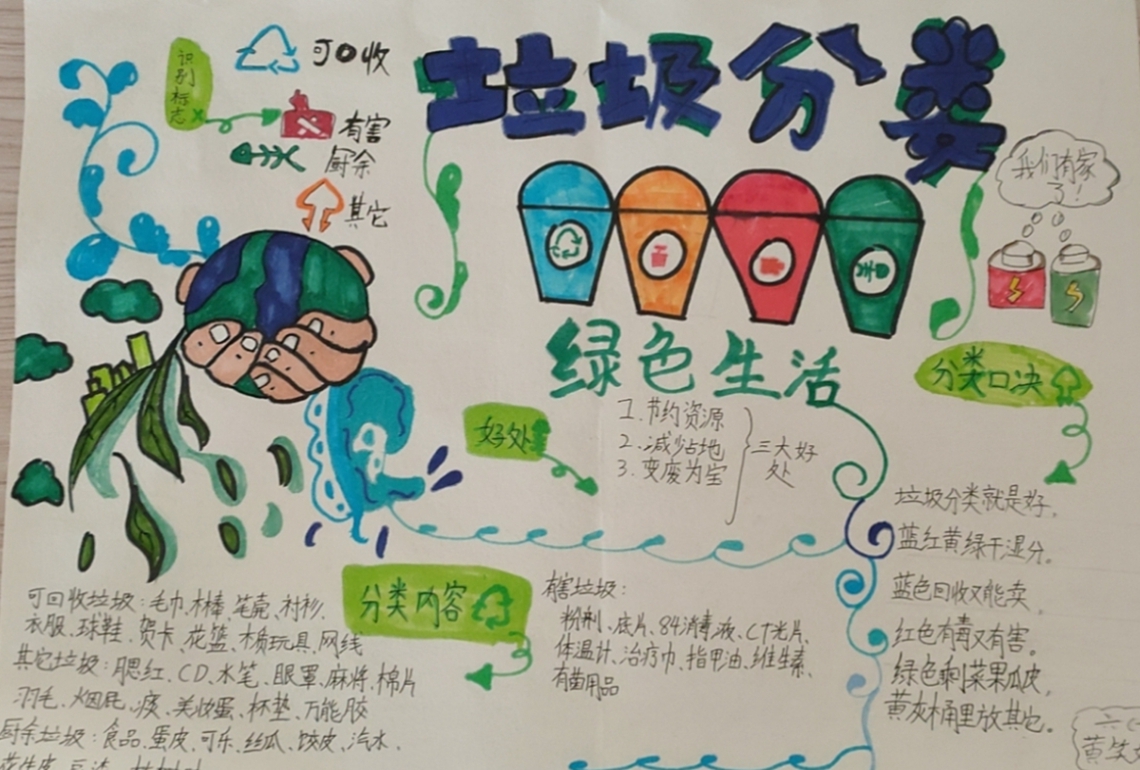 垃圾分类
识别标志
可回收
有害
厨余
其它
我们有家
了!
绿色生活
分类口决
好处
1.节约资源
2.减少占地
3.变废为宝
三大好
处
垃圾分类就是好,
蓝红黄绿干湿分。
蓝色回收又能卖,
红色有毒又有害。
绿色剩菜果瓜皮,
黄灰桶里放其它。
分类内容
可回收垃圾:毛巾、木棒、笔壳、衬衫、
衣服、球鞋、贺卡、花篮、木质玩具、网线
其它垃圾:腮红、CD、水笔、眼罩、麻将、棉片
羽毛、烟屁、痰、美妆蛋、杯垫、万能胶
厨余垃圾:食品、蛋皮、可乐、丝瓜、饺皮、汽水、
有害垃圾:
粉剂、底片、84消毒液、CT光片、
体温计、治疗巾、指甲油、维生素、
有菌用品